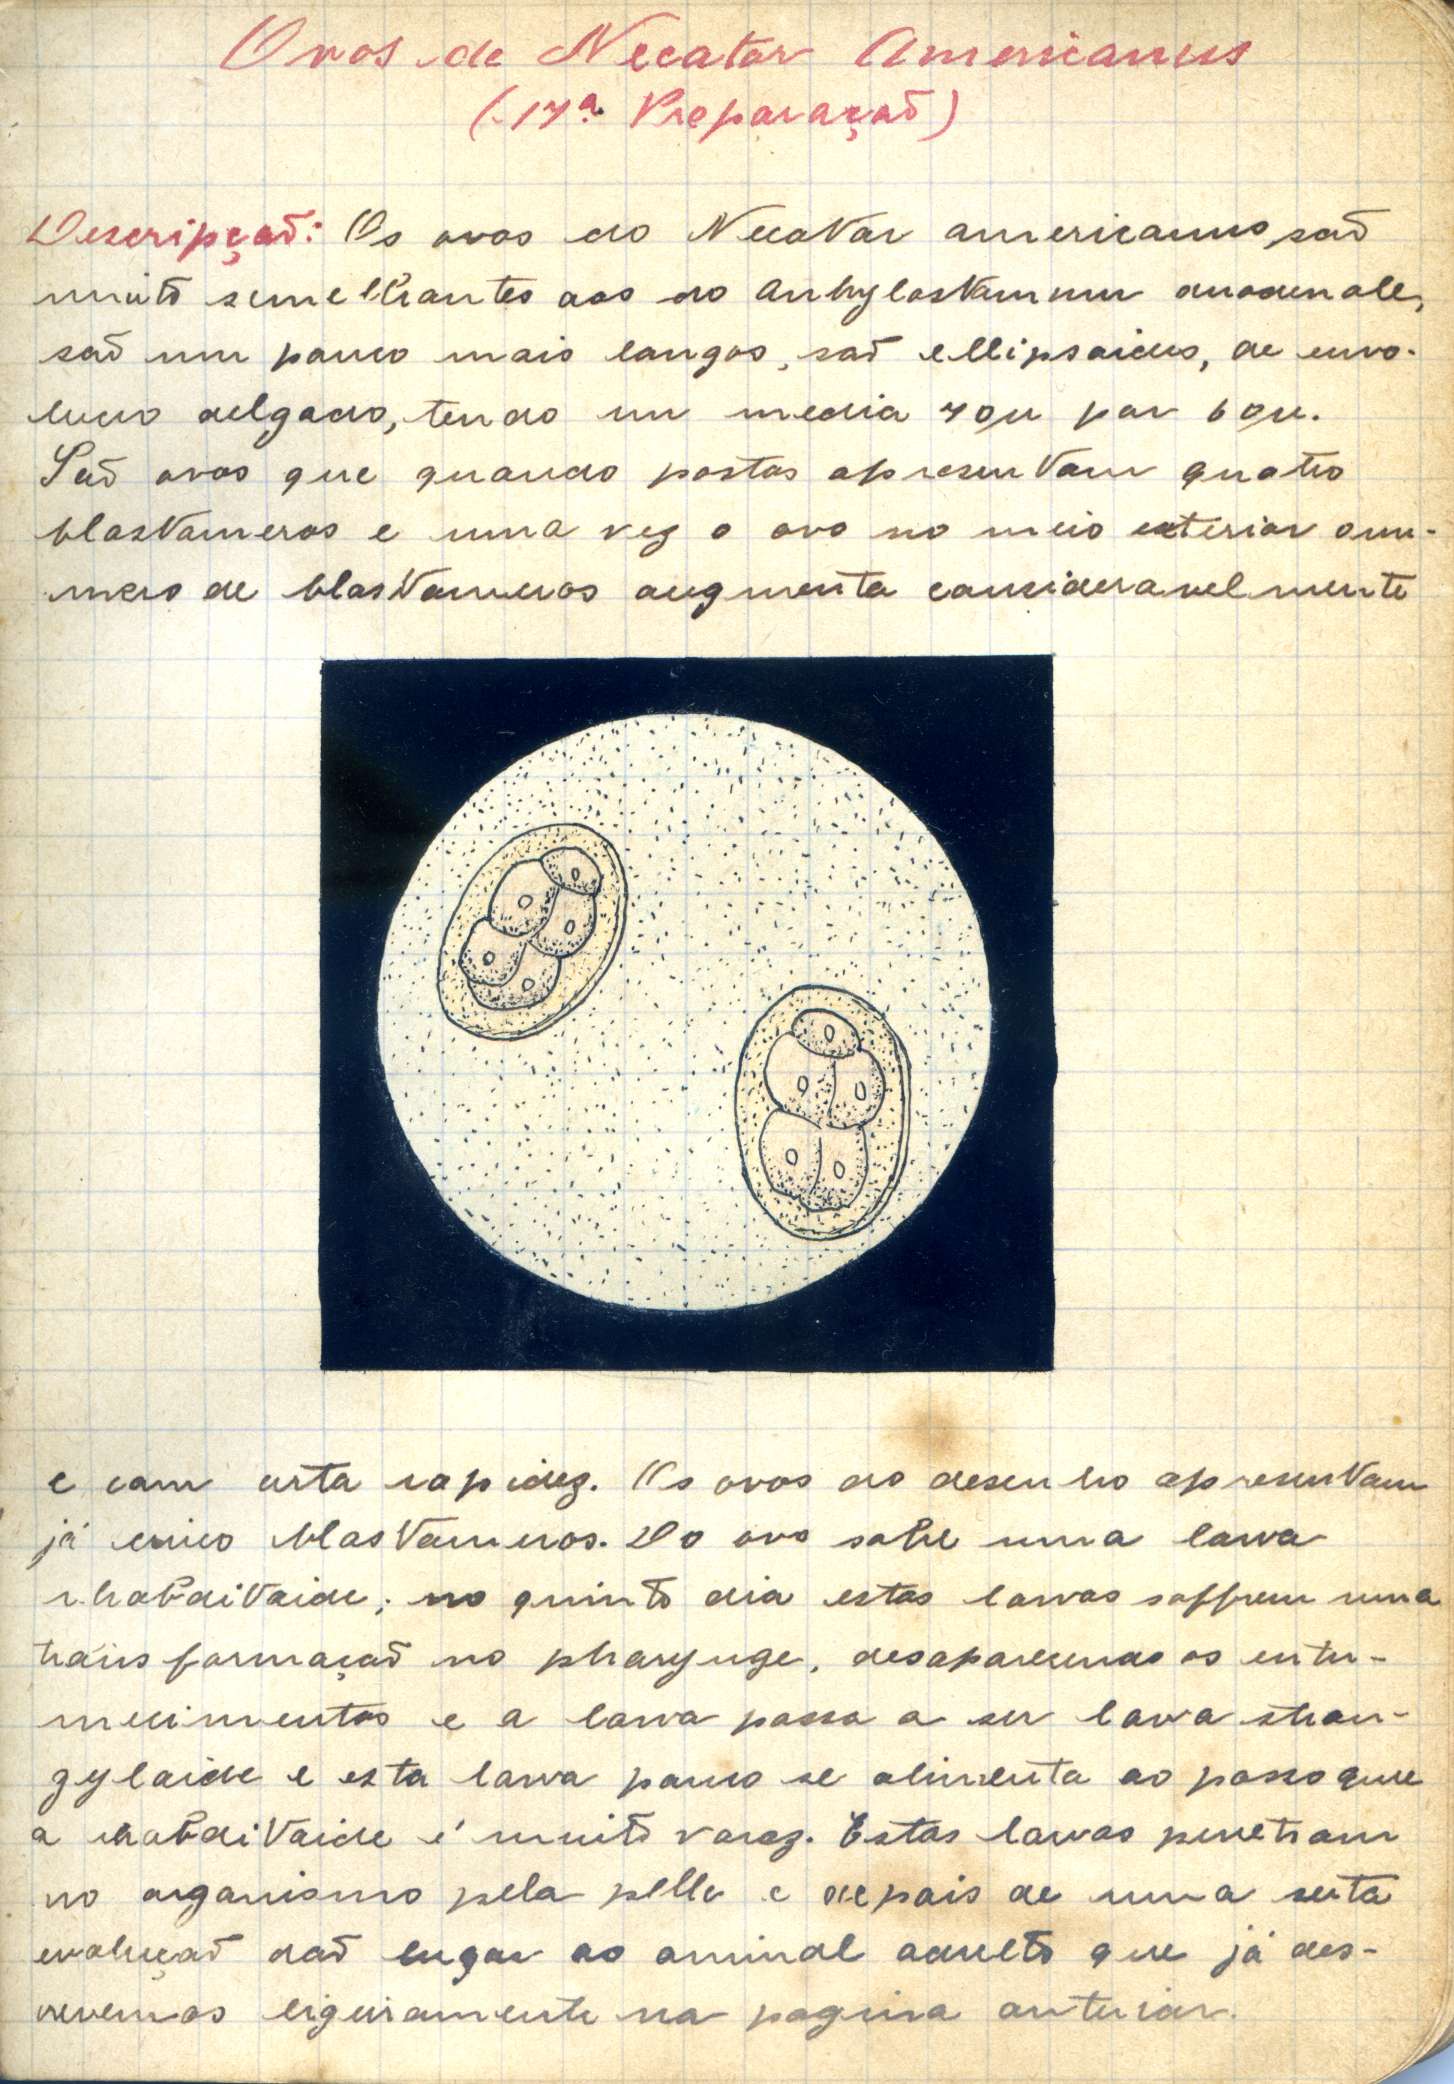 Ovos de Necator Americanus
(17ª Preparação)
Descripção: Os ovos do Necator americanus, são
muito semelhantes aos do Ankylostammum duodenale,
são um pouco mais longos, são ellipsoides, de envo-
lucro delgado, tendo em media 70µ por 60µ.
São ovos que quando postos apresentam quatro
blastomeros e uma vez o ovo no meio exterior o nu-
mero de blastomeros augmenta consideravelmente
e com certa rapidez. Os ovos do desenho apresentam
já cinco blastomeros. Do ovo sahe uma larva
rhabditoide; no quinto dia estas larvas soffrem uma
transformação no pharynge, desaparecendo os entu-
mecimentos e a larva passa a ser larva stron-
gyloide e esta larva pouco se alimenta ao passo que
a rhabditoide é muito voraz. Estas larvas penetram
no organismo pela pelle e depois de uma serta
evolução dão lugar ao animal adulto que já des-
crevemos ligeiramente na pagina anterior.